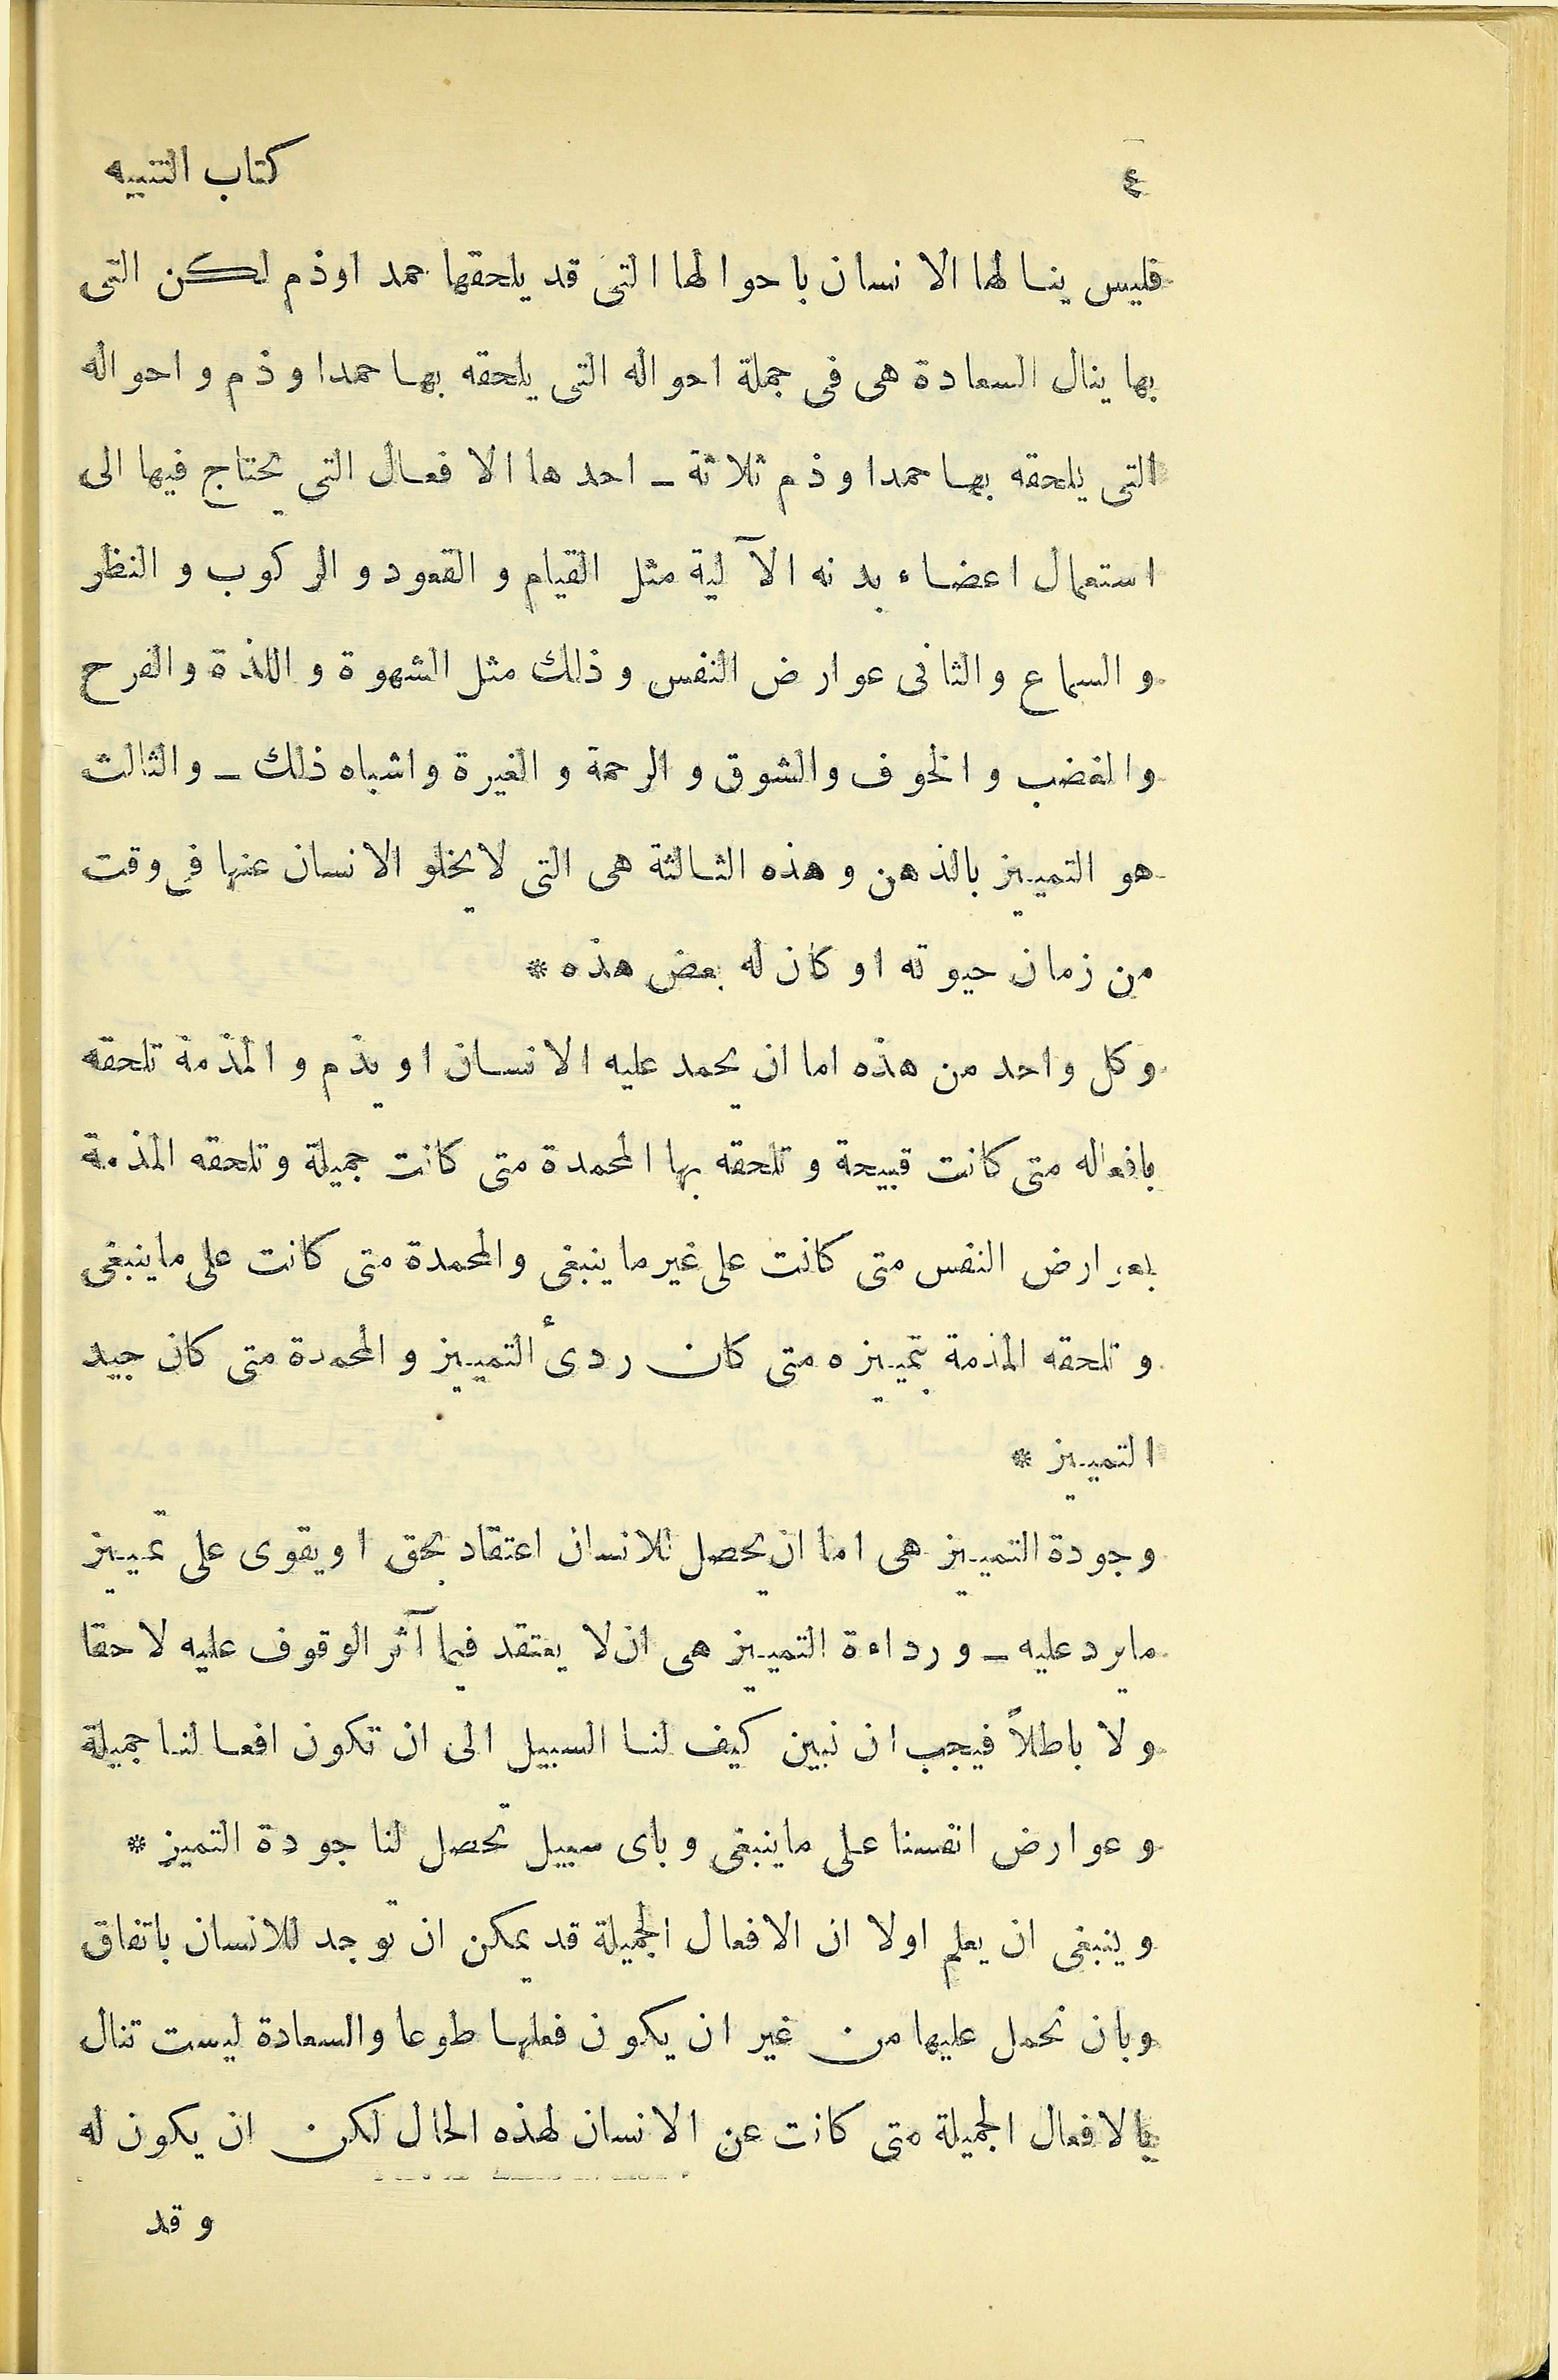 ٤ كتاب التنبيه
فليس ينالها الانسان باحوالها التى قد يلحقها حمد اوذم لكن التى
بها ينال السعادة هى فى جملة احواله التى يلحقه بها حمد او ذم و احواله
التى يلحقه بها حمد او ذم ثلاثة ـ احدها الافعال التى يحتاج فيها الى
استعمال اعضاء بدنه الآلية مثل القيام و القعود و الركوب و النظر
و السماع و الثانى عوارض النفس و ذلك مثل الشهوة و اللذة و الفرح
و الغضب و الخوف و الشوق و الرحمة و الغيرة و اشباه ذلك ـ و الثالث
هو التمييز بالذهن و هذه الثالثة هى التى لا يخلو الانسان عنها فى وقت
من زمان حيوته او كان له بعض هذه *
و كل واحد من هذه اما ان يحمد عليه الانسان او يذم و المذمة تلحقه
بافعاله متى كانت قبيحة و تلحقه بها المحمدة متى كانت جميلة و تلحقه المذمة
بعوارض النفس متى كانت على غير ما ينبغى و المحمدة متى كانت على ما ينبغى
و تلحقه المذمة بتمييزه متى كان ردىٔ التمييز و المحمدة متى كان جيد
التمييز *
وجودة التمييز هى اما ان يحصل للانسان اعتقاد بحق او يقوى على تمييز
ما يرد عليه ـ و رداءة التمييز هى ان لا يعتقد فيما آثر الوقوف عليه لا حقا
و لا باطلاً فيجب ان نبين كيف لنا السبيل الى ان تكون افعالنا جميلة
و عوارض انفسنا على ما ينبغى و باى سبيل تحصل لنا جودة التميز *
و ينبغى ان يعلم اولا ان الافعال الجميلة قد يمكن ان توجد للانسان باتفاق
و بان تحمل عليها من غير ان يكون فعلها طوعا و السعادة ليست تنال
بالافعال الجميلة متى كانت عن الانسان لهذه الحال لكن ان يكون له
و قد